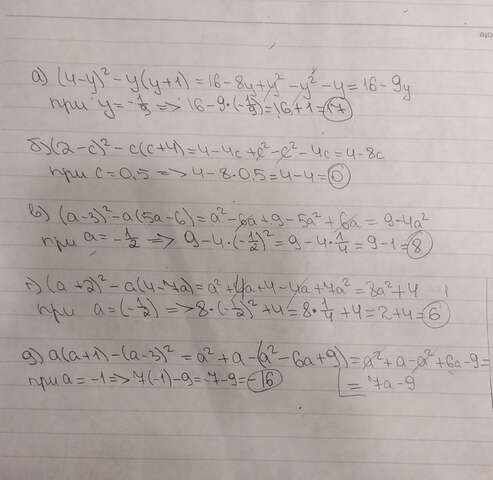 а) (4-y)² - y(y+1) = 16 - 8y + y² - y² - y = 16 - 9y
при y = -1/9 => 16 - 9·(-1/9) = 16 + 1 = 17
б) (2-c)² - c(c+4) = 4 - 4c + c² - c² - 4c = 4 - 8c
при c = 0,5 => 4 - 8·0,5 = 4 - 4 = 0
в) (a-3)² - a(5a-6) = a² - 6a + 9 - 5a² + 6a = 9 - 4a²
при a = -1/2 => 9 - 4·(-1/2)² = 9 - 4·1/4 = 9 - 1 = 8
г) (a+2)² - a(4-7a) = a² + 4a + 4 - 4a + 7a² = 8a² + 4
при a = (-1/2) => 8·(-1/2)² + 4 = 8·1/4 + 4 = 2 + 4 = 6
д) a(a+1) - (a-3)² = a² + a - (a² - 6a + 9) = a² + a - a² + 6a - 9 =
= 7a - 9
при a = -1 => 7(-1) - 9 = -7 - 9 = -16